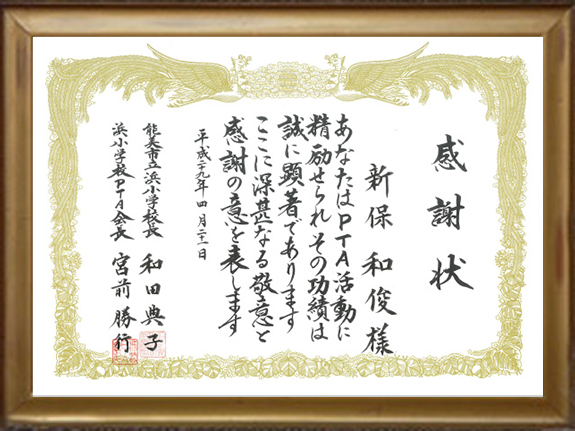 感謝状
新保和俊様
あなたはPTA活動に
精励せられその功績は
誠に顕著であります
ここに深甚なる敬意と
感謝の意を表します
平成二十九年四月二十一日
能美市立浜小学校長 和田典子
浜小学校PTA会長 宮前勝行